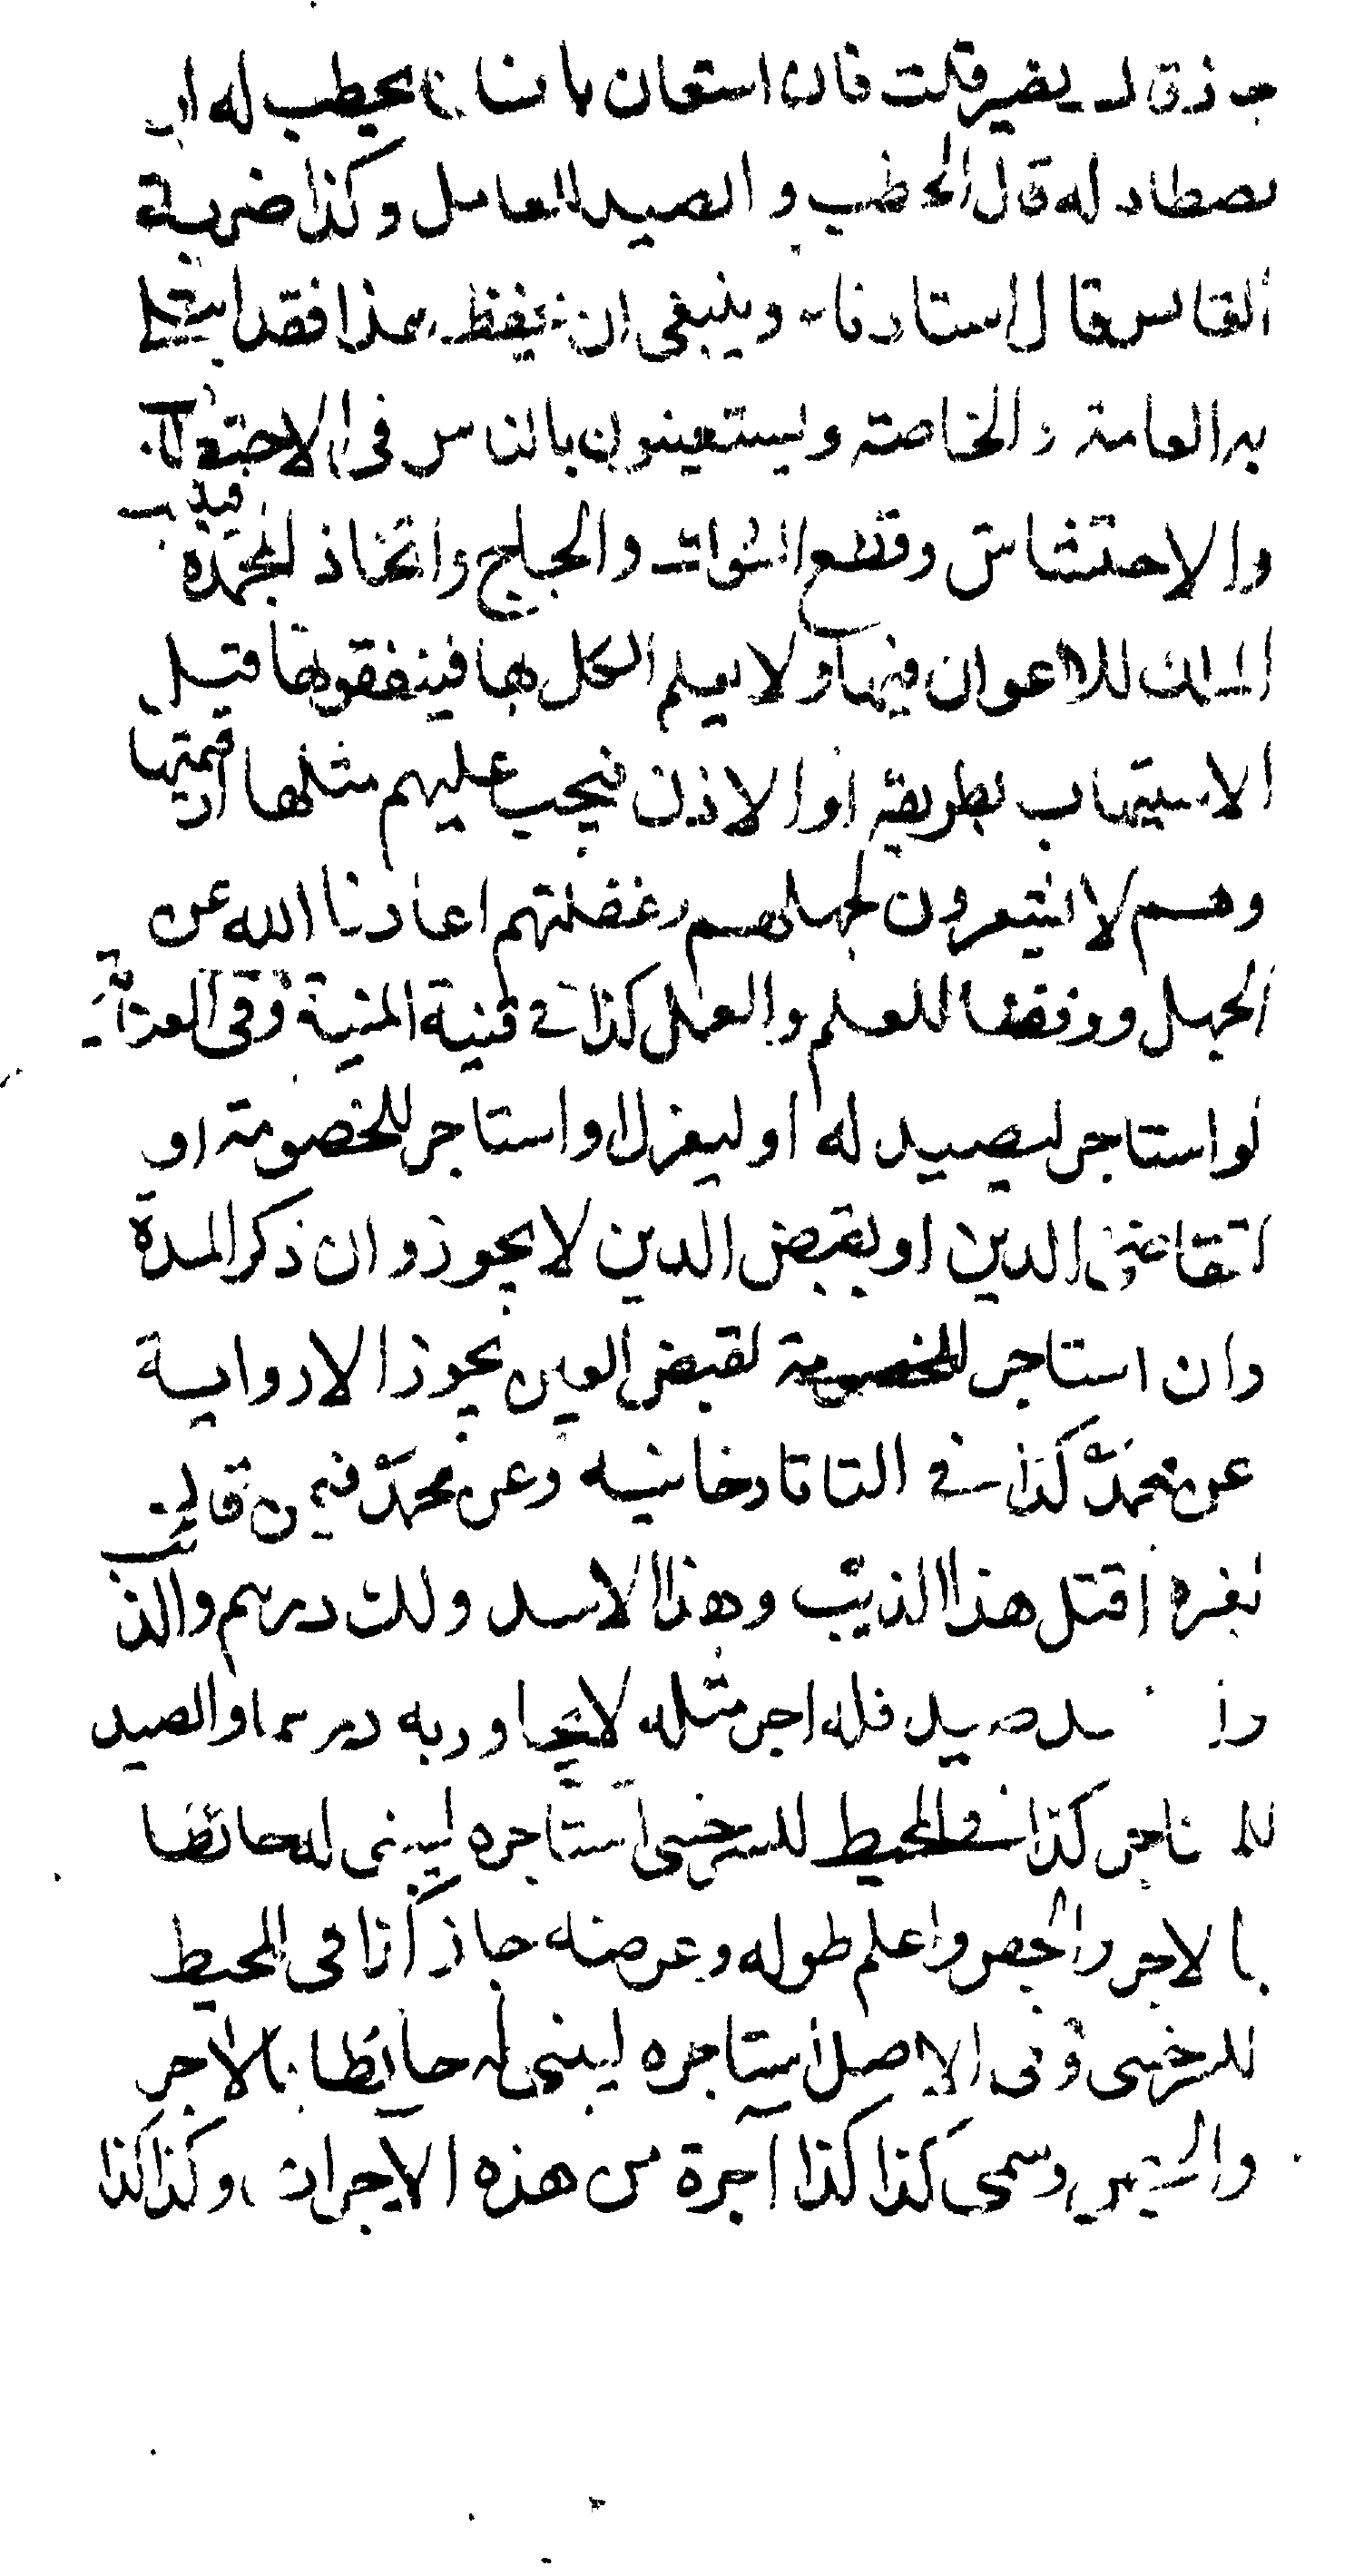 قلت فان استعان بانسان يحطب له او
يصطاد له قال الحطب و الصيد للعامل وكذا ضربة
القانص قال استادنا وينبغي ان يحفظ هذا فقد ابتلي
به العامة والخاصة ويستعينون بالناس في الاحتطاب
والاحتشاش وقطع الشوك والحاج واتخاذ المجمدة فيثبت
الملك للاعوان فيها ولا يعلم الكل بها فينفقونها قبل
الاستيهاب بطريقه او الاذن فيجب عليهم مثلها او قيمتها
وهم لا يشعرون لجهلهم وغفلتهم اعاذنا الله عن
الجهل ووفقنا للعلم والعمل كذا في قنية المنية وفي
لو استاجر ليصيد له او ليغزل او استاجر للخصومة او
لتقاضي الدين او بقبض الدين لا يجوز وان ذكر المدة
وان استاجر للخصومة لقبض العين يجوز الا رواية
عن محمد كذا في التاتارخانيه وعن محمد فيمن قال
لغيره اقتل هذا الذيب وهذا الاسد ولك درهم والذيب
صيد فله اجر مثله لا يجاوز به درهما والصيد
للمستاجر كذا في المحيط للسرخسي استاجره ليبني له حائطا
بالاجر والجص واعلم طوله وعرضه جاز كذا في المحيط
للسرخسي وفي الاصل استاجره ليبني له حائطا بالاجر
وسمى كذا كذا آجرة من هذه الاجرات وكذا كذا